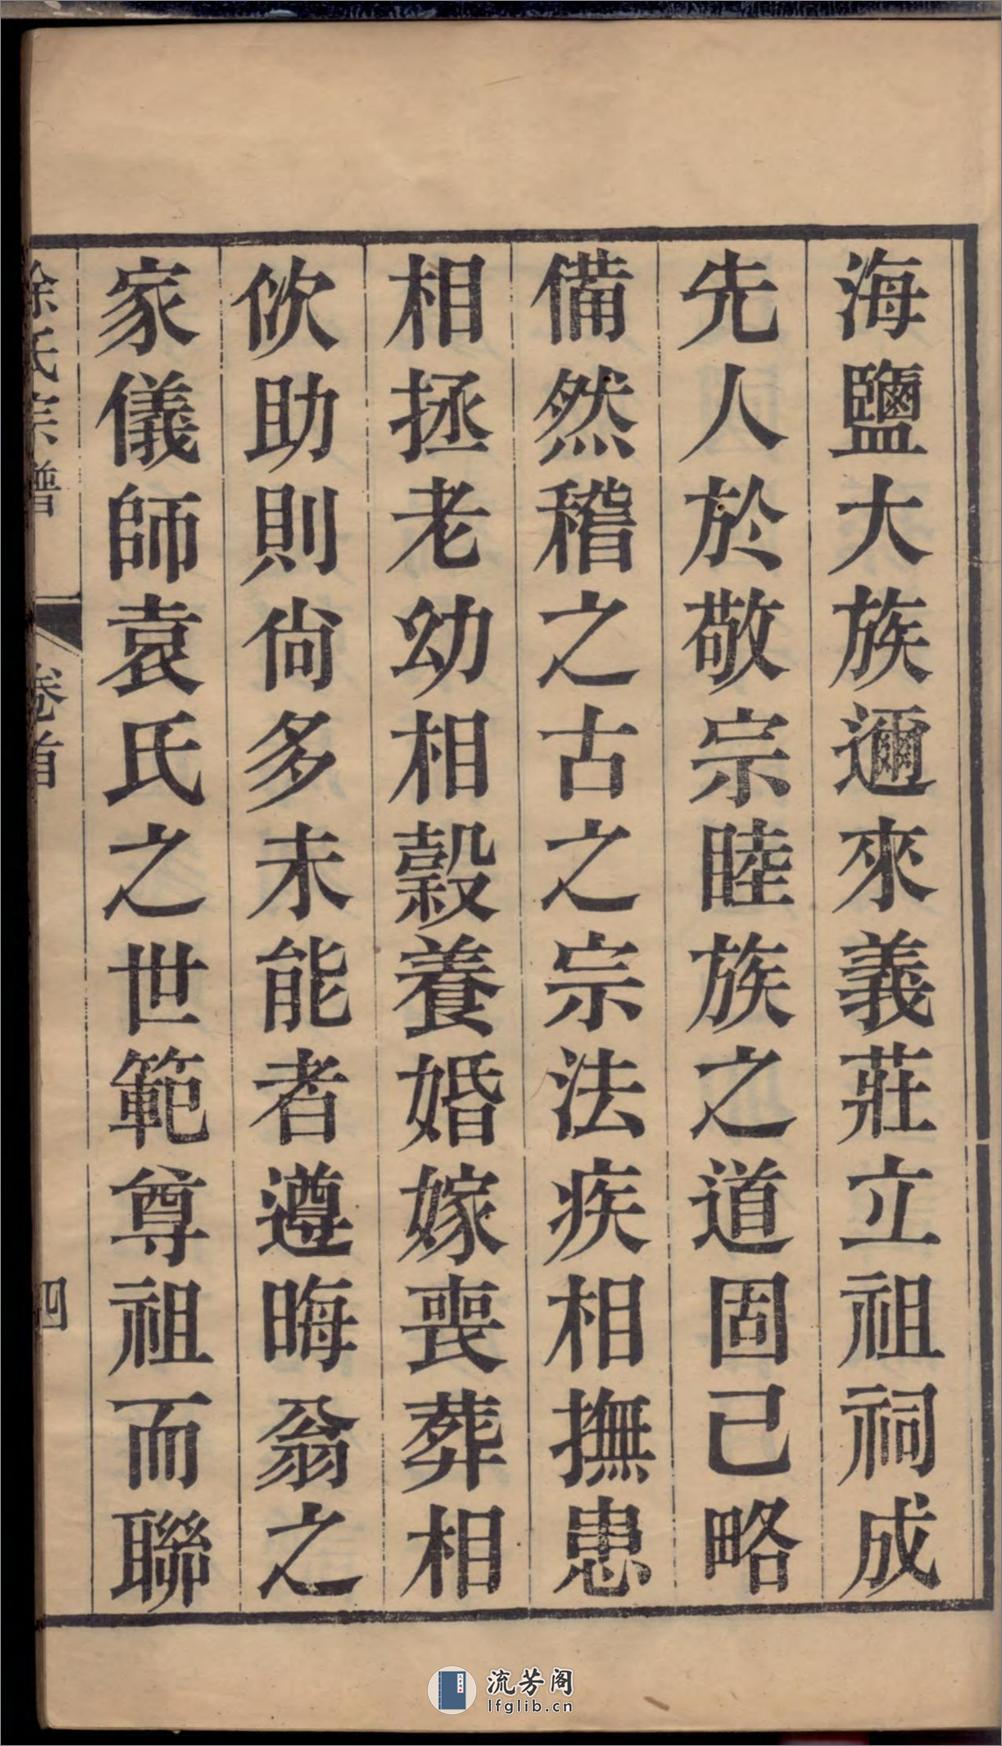 海鹽大族邇來義莊立祖祠成
先人於敬宗睦族之道固已略
備然稽之古之宗法疾相撫患
相拯老幼相穀養婚嫁喪葬相
佽助則尙多未能者遵晦翁之
家儀師袁氏之世範尊祖而聯
徐氏宗譜 卷首 四
流芳阁
lfglib.cn